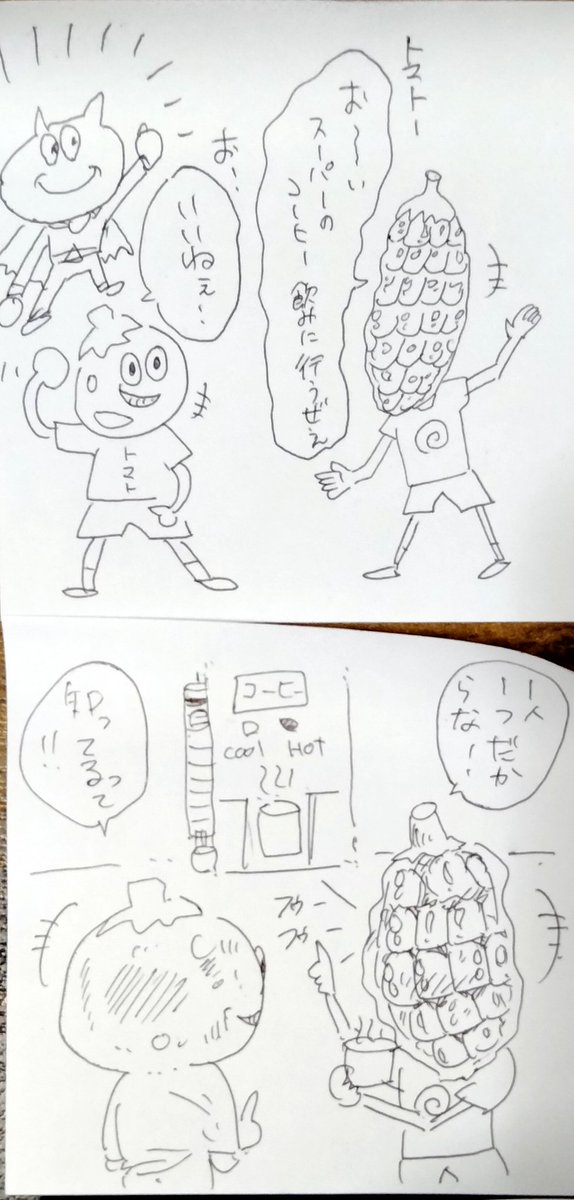 トマトー
お〜い
スーパーの
コーヒー飲みに行うぜぇ
お、
いいねぇ、
トマト
一人
一つだか
らな!、
コーヒー
COOl HOT
知ってるって
!!
フゥー
フゥー